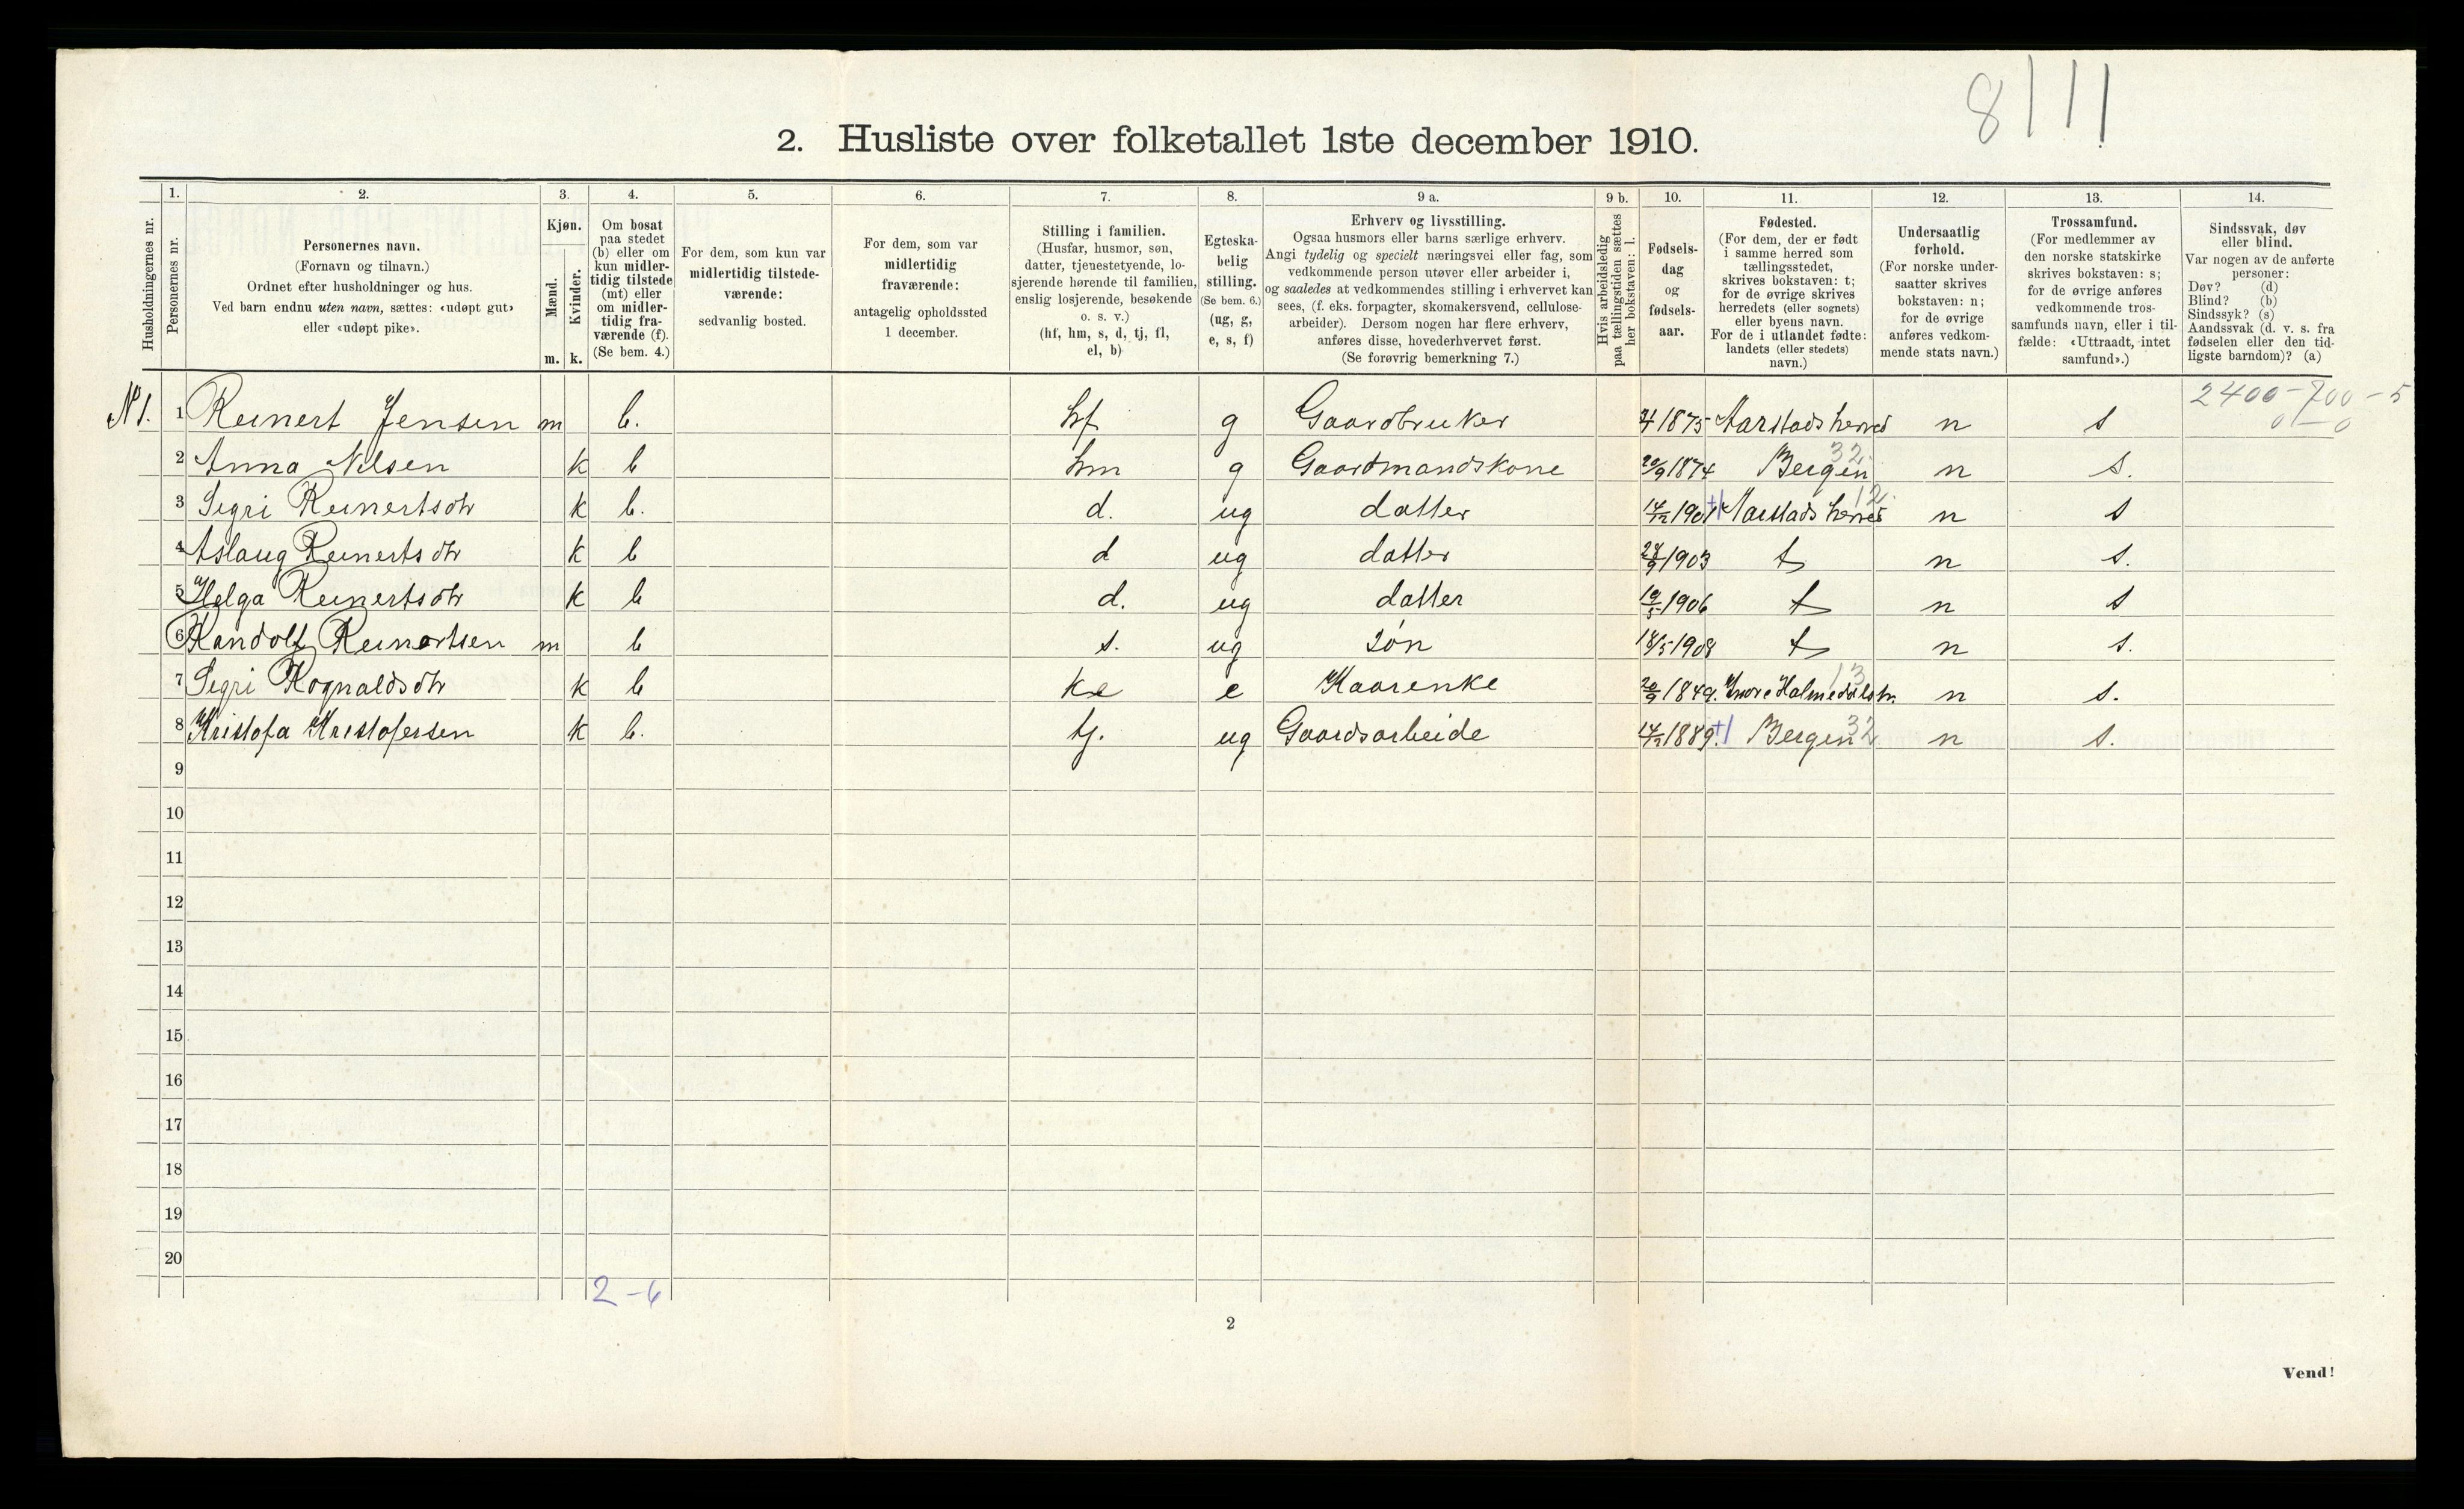 8111
2. Husliste over folketallet 1ste december 1910.
1. 2. 3. 4. 5. 6. 7. 8. 9 a. 9 b. 10. 11. 12. 13. 14.
Husholdningernes nr.
Personernes nr.
Personernes navn.
(Fornavn og tilnavn.)
Ordnet efter husholdninger og hus.
Ved barn endnu uten navn, sættes: «udøpt gut»
eller «udøpt pike».
Kjøn.
Mænd.
Kvinder.
m. k.
Om bosat
paa stedet
(b) eller om
kun midler-
tidig tilstede
(mt) eller
om midler-
tidig fra-
værende (f).
(Se bem. 4.)
For dem, som kun var
midlertidig tilstede-
værende:
sedvanlig bosted.
For dem, som var
midlertidig
fraværende:
antagelig opholdssted
1 december.
Stilling i familien.
(Husfar, husmor, søn,
datter, tjenestetyende, lo-
sjerende hørende til familien,
enslig losjerende, besøkende
o. s. v.)
(hf, hm, s, d, tj, fl,
el, b)
Egteska-
belig
stilling.
(Se bem. 6.)
(ug, g,
e, s, f)
Erhverv og livsstilling.
Ogsaa husmors eller barns særlige erhverv.
Angi tydelig og specielt næringsvei eller fag, som
vedkommende person utøver eller arbeider i,
og saaledes at vedkommendes stilling i erhvervet kan
sees, (f. eks. forpagter, skomakersvend, cellulose-
arbeider). Dersom nogen har flere erhverv,
anføres disse, hovederhvervet først.
(Se forøvrig bemerkning 7.)
Hvis arbeidsledig
paa tællingstiden sættes
her bokstaven: l.
Fødsels-
dag
og
fødsels-
aar.
Fødested.
(For dem, der er født
i samme herred som
tællingsstedet,
skrives bokstaven: t;
for de øvrige skrives
herredets (eller sognets)
eller byens navn.
For de i utlandet fødte:
landets (eller stedets)
navn.)
Undersaatlig
forhold.
(For norske under-
saatter skrives
bokstaven: n;
for de øvrige
anføres vedkom-
mende stats navn.)
Trossamfund.
(For medlemmer av
den norske statskirke
skrives bokstaven: s;
for de øvrige anføres
vedkommende tros-
samfunds navn, eller i til-
fælde: «Uttraadt, intet
samfund».)
Sindssvak, døv
eller blind.
Var nogen av de anførte
personer:
Døv? (d)
Blind? (b)
Sindssyk? (s)
Aandssvak (d. v. s. fra
fødselen eller den tid-
ligste barndom)? (a)
2400-700-5
0-0
N 1. 1 Reinert Jensen m b. hf g Gaardbruker 1875 Aarstads herred n s
2 Anna Nilsen k b hm g Gaardmandskone 20/9 1874 Bergen 32 n s.
3 Segri Reinertsdtr k b. d. ug datter 14/12 1901 +1 Aarstads herred 12. n s
4 Aslaug Reinertsdtr k b d ug datter 28/9 1903 t n s.
5 Helga Reinertsdtr k b d. ug datter 19/5 1906 t n s
6 Randolf Reinertsen m b s. ug søn 18/5 1908 t n s.
7 Segri Rognaldsdtr k b ke e Kaarenke 20/9 1849. Indre Holmedalstr. 13 n s.
8 Kristofa Kristofersen k b. tj. ug Gaardsarbeide 14/12 1889. +1 Bergen 32 n s.
9
10
11
12
13
14
15
16
17
18
19
20
2-6
2
Vend!